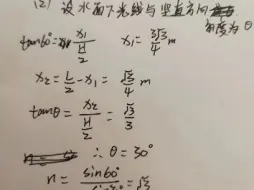 (2) 设水面下光线与竖直方向
角度为θ
tan60°= x₁/(H/2) x₁= 3√3/4 m
x₂= L/2 - x₁ = √3/4 m
tanθ= x₂/(H/2) = √3/3
∴θ=30°
n= sin60°/sin30° =√3